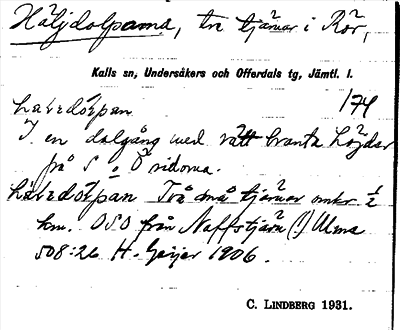 Häljdolparna, tre tjärnar i Rör,
Kalls sn, Undersåkers och Offerdals tg, Jämtl. l.
174
I en dalgång med rätt branta höjder
på S o Ö sidorna.
Två små tjärnar omkr. ½
km. OSO från Naffstjärn (!) Ulma
508:26 H. Geijer 1906.
C. LINDBERG 1931.